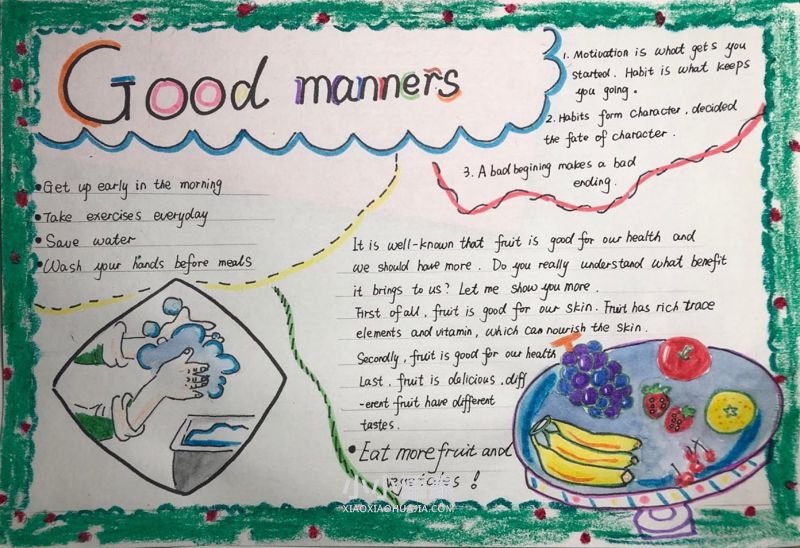 Good manners
1. Motivation is what gets you
started. Habit is what keeps
you going.
2. Habits form character, decided
the fate of character.
3. A bad begining makes a bad
ending.
•Get up early in the morning
•Take exercises everyday
•Save water
•Wash your hands before meals
It is well-known that fruit is good for our health and
we should have more. Do you really understand what benefit
it brings to us? Let me show you more.
First of all, fruit is good for our skin. Fruit has rich trace
elements and vitamin, which can nourish the skin.
Secondly, fruit is good for our health
Last, fruit is delicious, diff
-erent fruit have different
tastes.
•Eat more fruit and
vegetables!
XIAOXIAOHUAJIA.COM